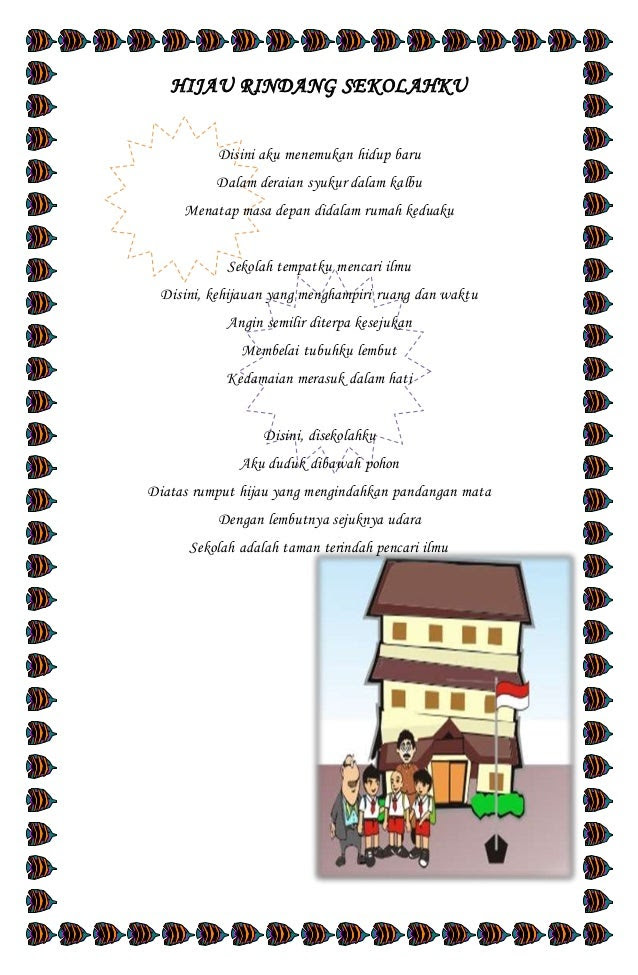 HIJAU RINDANG SEKOLAHKU
Disini aku menemukan hidup baru
Dalam deraian syukur dalam kalbu
Menatap masa depan didalam rumah keduaku
Sekolah tempatku mencari ilmu
Disini, kehijauan yang menghampiri ruang dan waktu
Angin semilir diterpa kesejukan
Membelai tubuhku lembut
Kedamaian merasuk dalam hati
Disini, disekolahku
Aku duduk dibawah pohon
Diatas rumput hijau yang mengindahkan pandangan mata
Dengan lembutnya sejuknya udara
Sekolah adalah taman terindah pencari ilmu